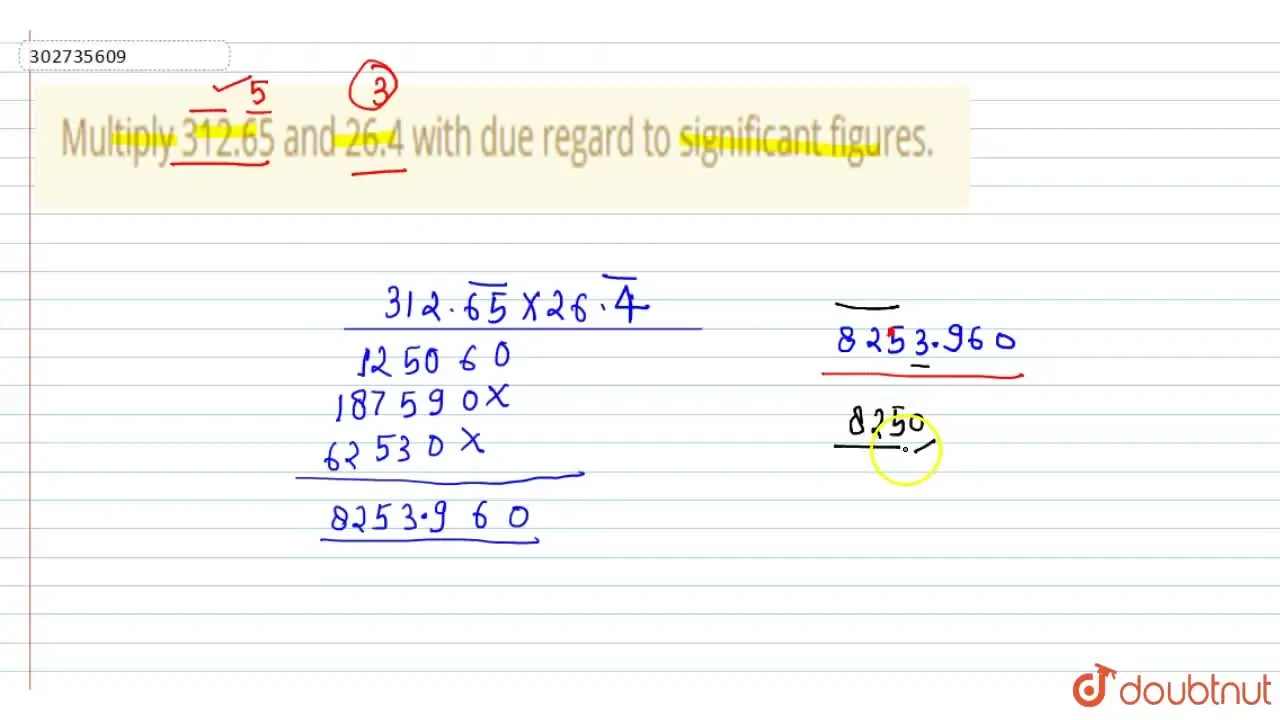 302735609
5
3
Multiply 312.65 and 26.4 with due regard to significant figures.
312.65 x 26.4
125060
187590x
62530x
8253.960
8253.960
8250
doubtnut